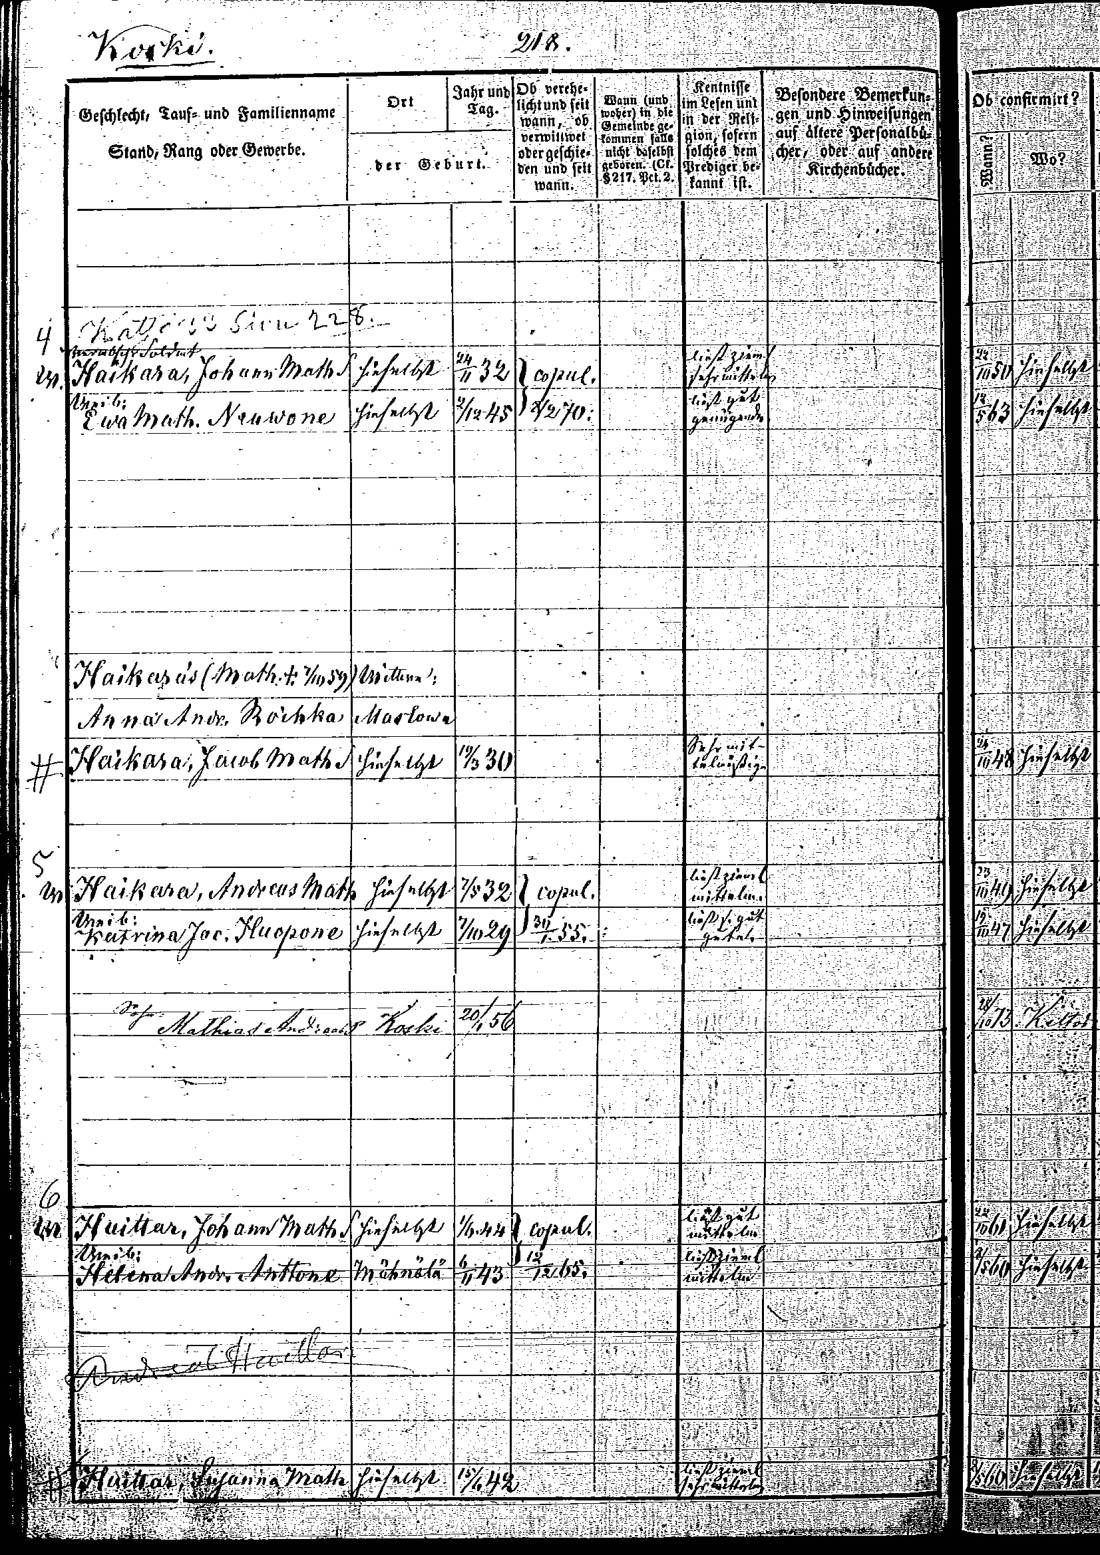 Koski. 218.
Geschlecht, Tauf- und Familienname
Stand, Rang oder Gewerbe.
Ort
der Geburt.
Jahr und
Tag.
Ob verehe-
licht und seit
wann, ob
verwittwet
oder geschie-
den und seit
wann.
Wann (und
woher) in die
Gemeinde ge-
kommen falls
nicht daselbst
geboren. (Cf.
§ 217, Pct. 2.
Kentnisse
im Lesen und
in der Reli-
gion, sofern
solches dem
Prediger be-
kannt ist.
Besondere Bemerkun-
gen und Hinweisungen
auf ältere Personalbü-
cher, oder auf andere
Kirchenbücher.
Ob confirmirt?
Wann? Wo?
4 228.
verabsch. Soldat
Haikara, Johann Math S hieselbst 24/11 32 copul. liest zieml. sehr mittelm. 50 hieselbst
Weib:
Ewa Math. Neuwone hieselbst 2/12 45 2/2 70. liest gut genügend 63 hieselbst
Haikara's (Math. † 7/10 59) Wittwe:
Anna Andr. Röhkä Maslowa
# Haikara, Jacob Math S hieselbst 19/3 30 Sehr mit- telmässig 48 hieselbst
5
Haikara, Andreas Math hieselbst 7/5 32 copul. liest zieml mittelm. 49 hieselbst
Weib:
Katrina Jac. Huopone hieselbst 7/10 29 30/1 55. liest s. gut 47 hieselbst
Sohn
Mathias Andreas Koski 20/1 56 73
6
Huittar, Johann Math S hieselbst 1/6 44 copul. liest gut mittelm 61 hieselbst
Weib:
Helena Andr. Anttone Mähnälä 6/11 43 12/12 65. liest zieml mittelm 60 hieselbst
Andreas Huittar
# Huittar, Susanna Math hieselbst 15/6 42 liest zieml sehr mittelm 60 hieselbst